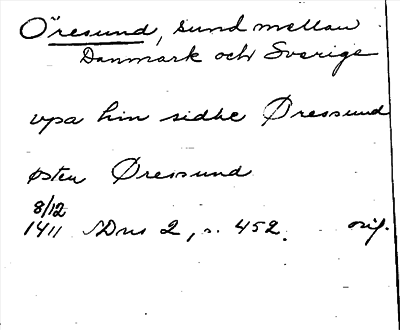 Öresund, sund mellan
Danmark och Sverige
vpa hin sidhe Øressund
østen Øressund
8/12
1411 SDns 2, s. 452. orig.